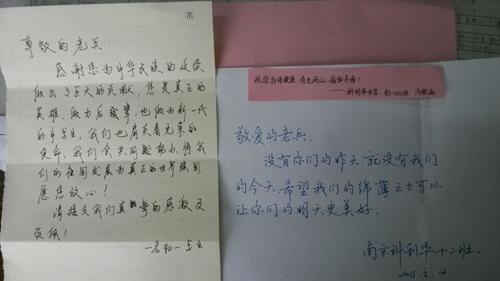 尊敬的老兵:
感谢您为中华民族的延续
做出了巨大的贡献,您是真正的
英雄。做为后辈,也做为新一代
的中学生,我们也肩负着光荣的
使命,我们会共同努力,将我
们的祖国发展为真正的世界强国,
愿您放心!
请接受我们真挚的感激及
祝福!
一名初一学生
祝您身体健康、寿比南山、福如东海!
——科利华中学 初一(12)班
敬爱的老兵:
没有你们的昨天就没有我们
的今天,希望我们的绵薄之力可以
让你们的明天更美好.
南京科利华十二班.
2015.2.12.